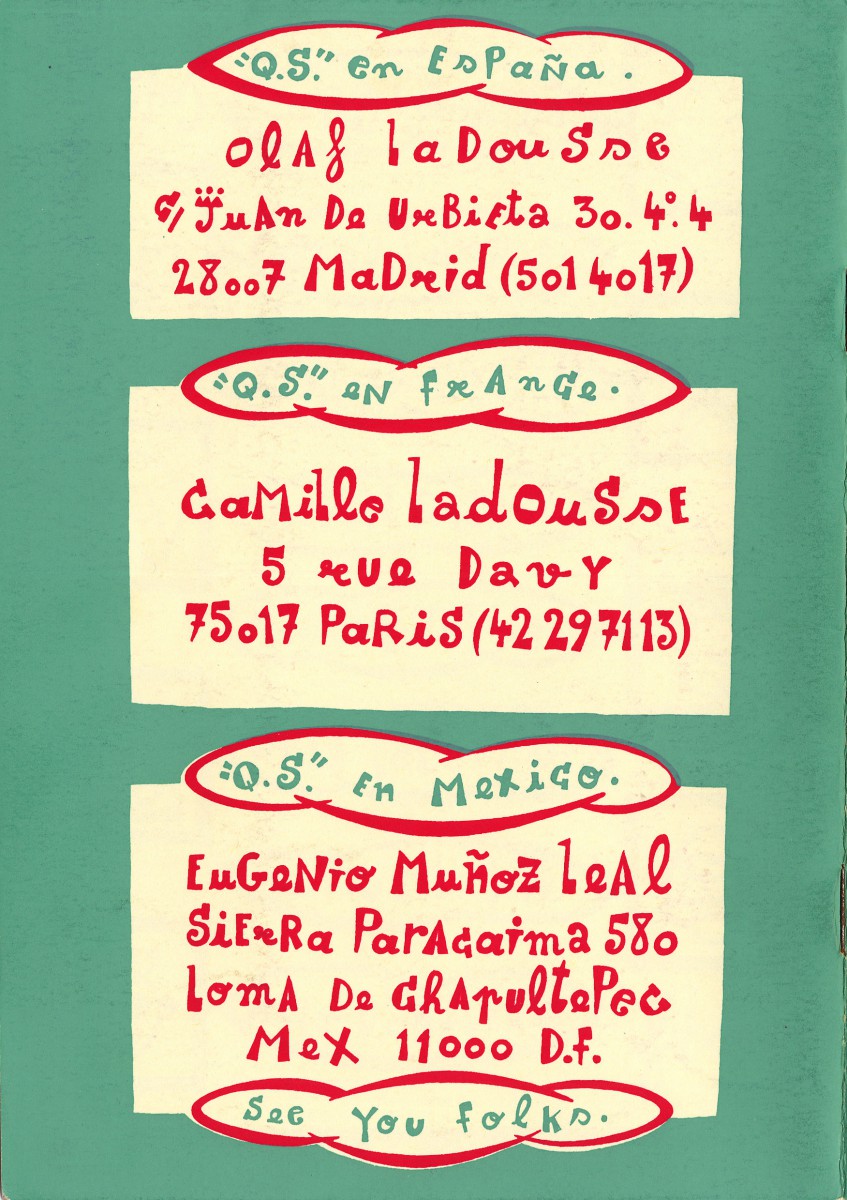 "Q.S." en España.
Olaf Ladousse
C/ Juan De Urbieta 30. 4º. 4
28007 Madrid (5014017)
"Q.S." en France.
Camille Ladousse
5 rue Davy
75017 Paris (42297113)
"Q.S." En Mexico.
Eugenio Muñoz Leal
Sierra Paracaima 580
Loma De Chapultepec
Mex 11000 D.F.
See You folks.